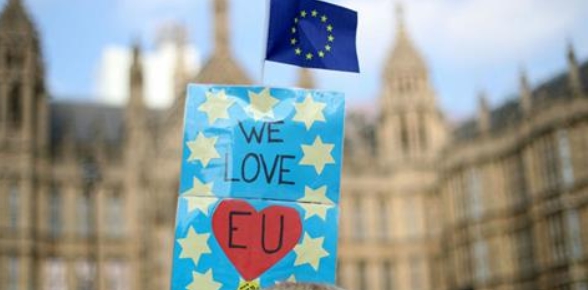 WE
LOVE
EU